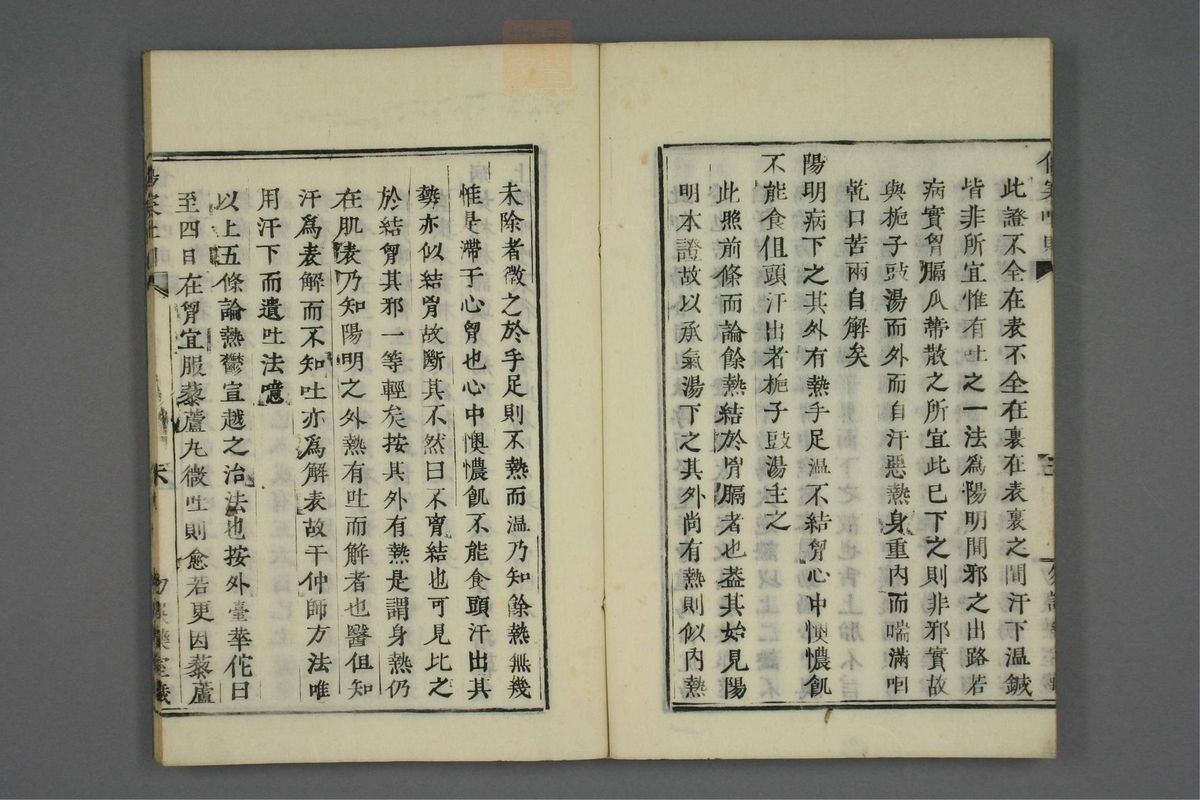 此證不全在表不全在裏在表裏之間汗下溫鍼
皆非所宜惟有吐之一法爲陽明間邪之出路若
病實胷膈瓜蔕散之所宜此已下之則非邪實故
與梔子豉湯而外而自汗惡熱身重內而喘滿咽
乾口苦兩自解矣
陽明病下之其外有熱手足溫不結胷心中懊憹飢
不能食但頭汗出者梔子豉湯主之
此照前條而論餘熱結於胷膈者也葢其始見陽
明本證故以承氣湯下之其外尚有熱則似內熱
未除者徵之於手足則不熱而溫乃知餘熱無幾
惟是滯于心胷也心中懊憹飢不能食頭汗出其
勢亦似結胷故斷其不然曰不胷結也可見比之
於結胷其邪一等輕矣按其外有熱是謂身熱仍
在肌表乃知陽明之外熱有吐而解者也醫但知
汗爲表解而不知吐亦爲解表故干仲師方法唯
用汗下而遺吐法噫
以上五條論熱鬱宣越之治法也按外臺華佗曰
至四日在胷宜服藜蘆丸微吐則愈若更因藜蘆